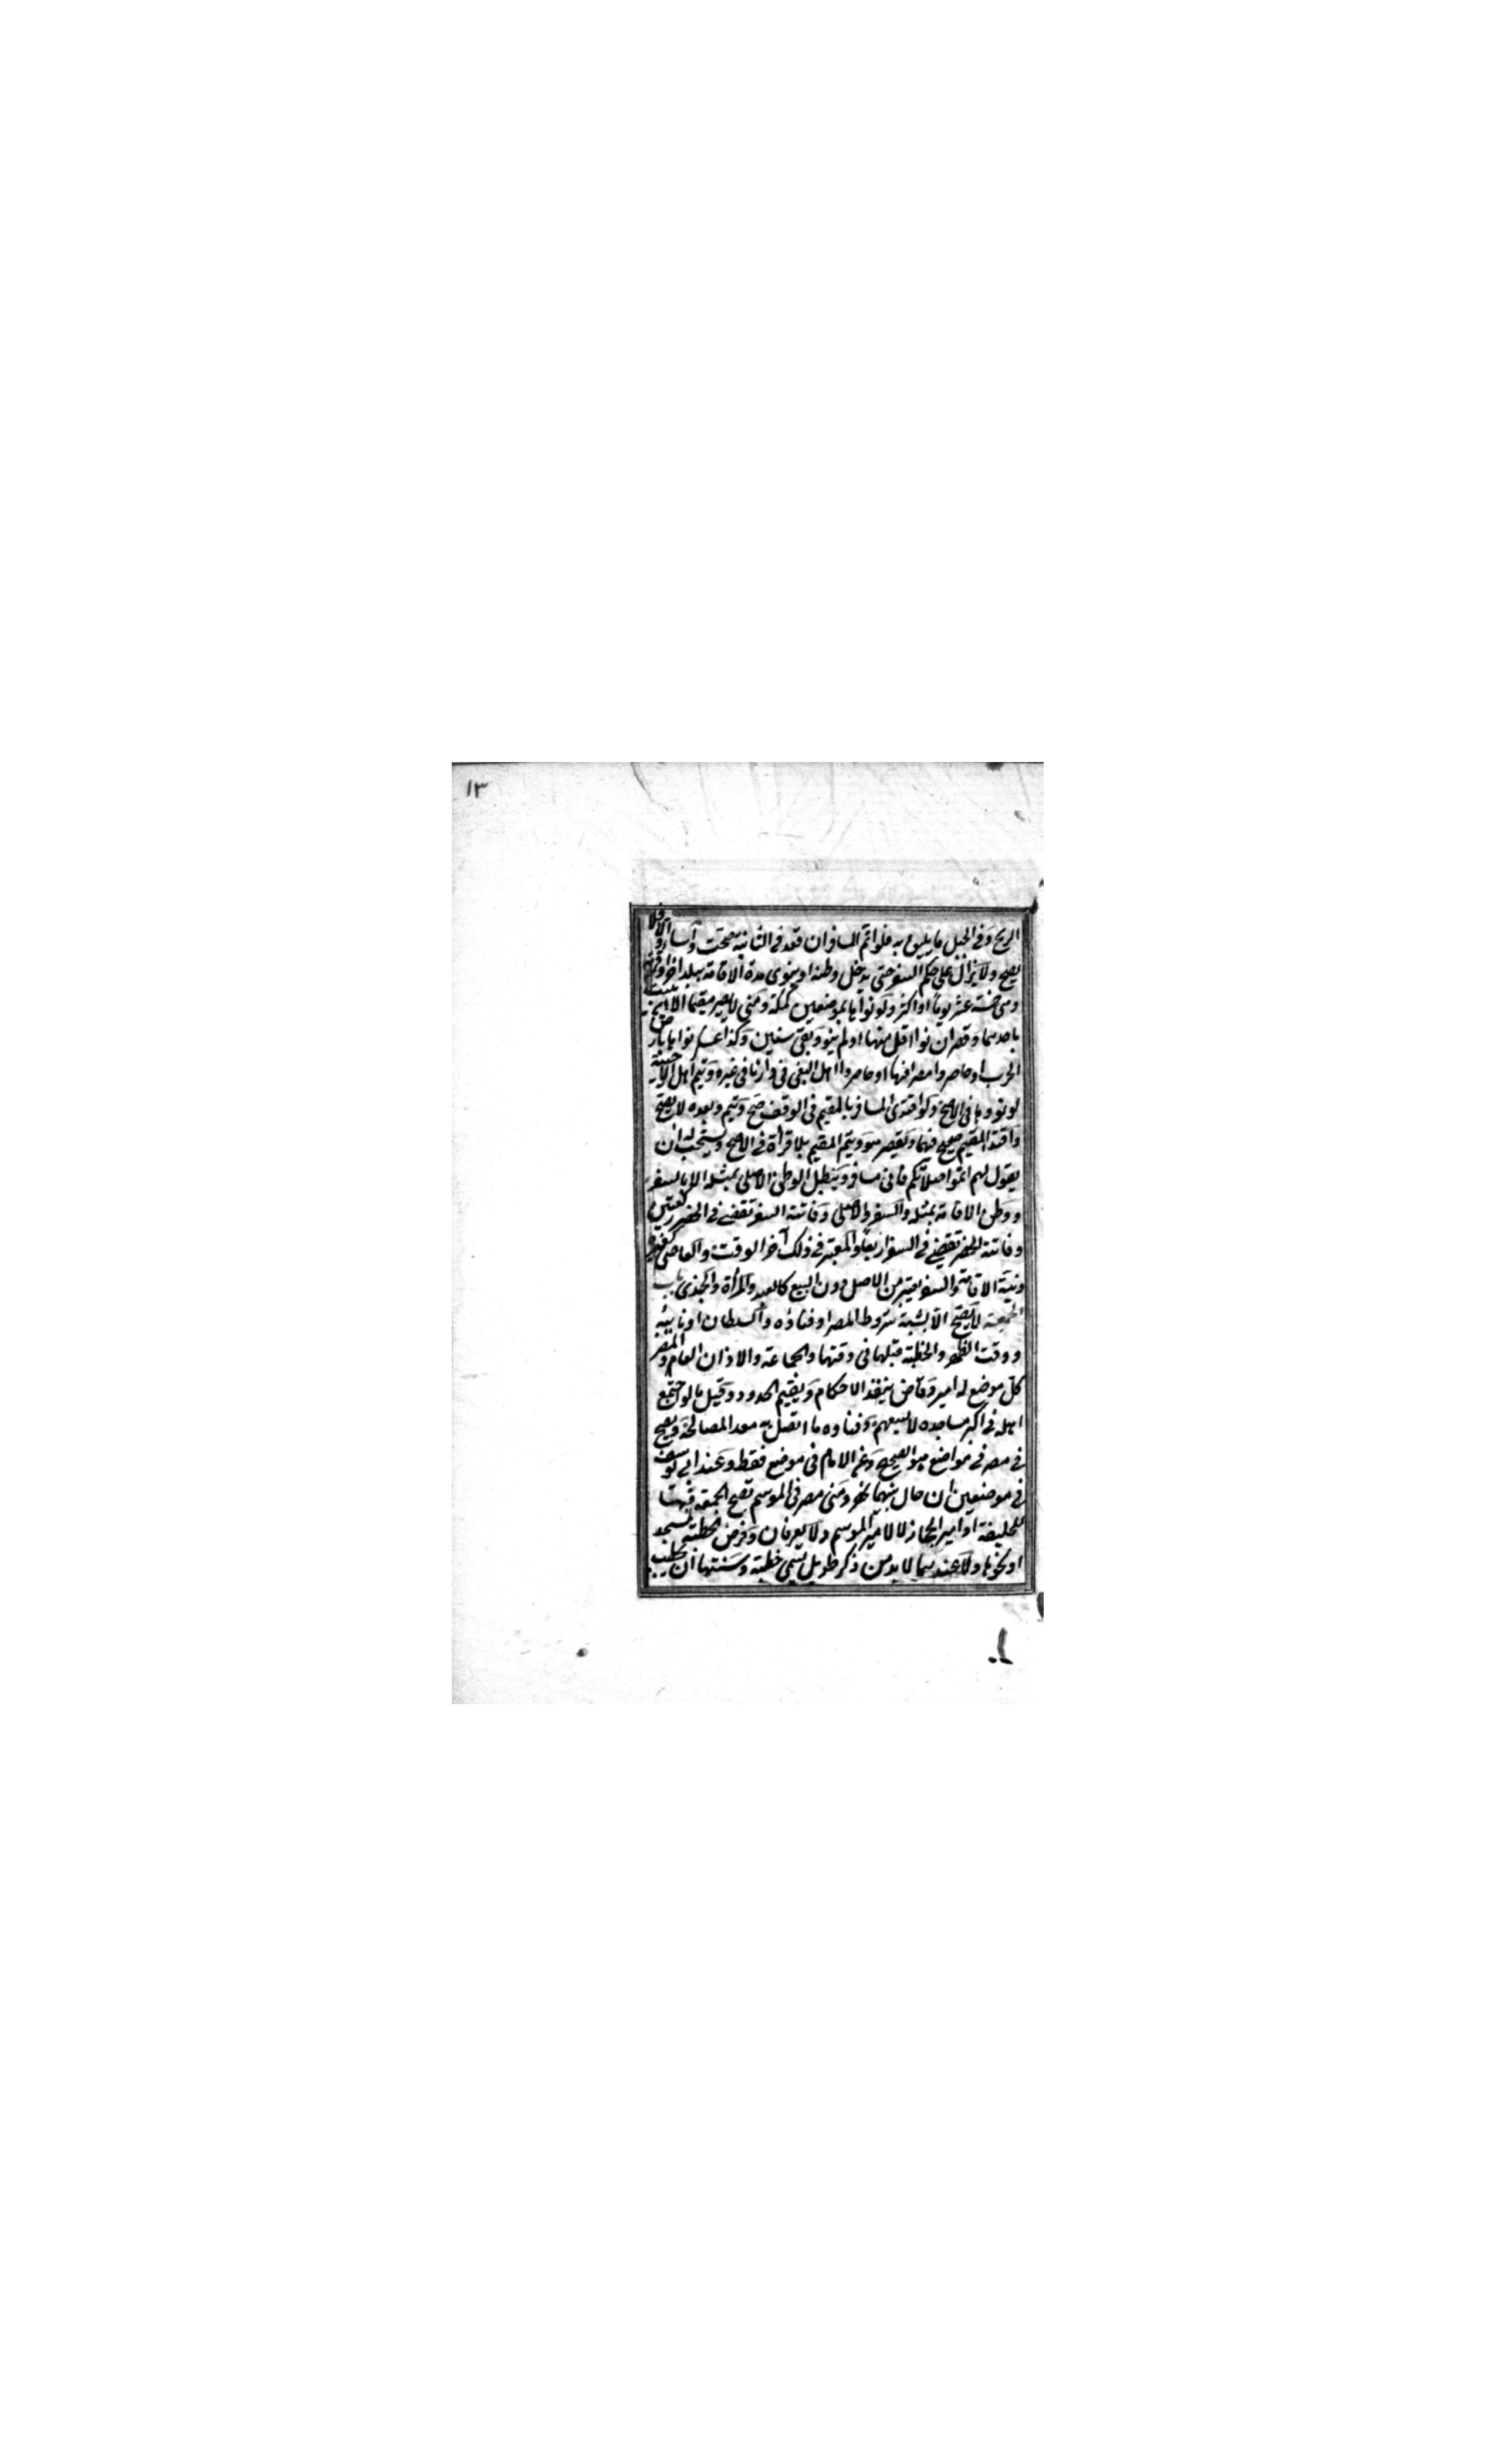 ١٣
الريح وفي الجبل ما يليق به فلو اتم المسافر ان قعد في الثانية صحت واساء والا فلا
يصح ولا يزال على حكم السفر حتى يدخل وطنه او ينوي مدة الاقامة ببلد اخر او قرية
وهي خمسة عشر يوما او اكثر ولو نوا بها بموضعين كمكة ومنى لا يصير مقيما الا ان يبيت
باحدهما وقصر ان نوا اقل منها او لم ينو وبقي سنين وكذا عسكر نواها بارض
الحرب او حاصروا مصرا فيها او حاصروا اهل البغي في دارنا في غيره ويتم اهل الاخبية
لو نووها في الاصح ولو اقتدى المسافر بالمقيم في الوقت صح ويتم وبعده لا يصح
واقتدا المقيم به صحيح فيهما ويقصر هو ويتم المقيم بلا قرأة في الاصح ويستحب له ان
يقول لهم اتموا صلاتكم فاني مسافر ويبطل الوطن الاصلي بمثله لا بالسفر
ووطن الاقامة بمثله والسفر والاصلي وفائتة السفر تقضى في الحضر ركعتين
وفائتة الحضر تقضى في السفر اربعا والمعتبر في ذلك آخر الوقت والعاصي كغيره
ونية الاقامة والسفر يعتبر من الاصل دون التبع كالعبد والمرأة والجندي باب
الجمعة لا يصح الا بستة شروط المصر او فناؤه والسلطان او نائبه
ووقت الظهر والخطبة قبلها في وقتها والجماعة والاذن العام والمصر
كل موضع له امير وقاض ينفذ الاحكام ويقيم الحدود وقيل ما لو اجتمع
اهله في اكبر مساجده لا يسعهم وفناوه ما اتصل به معدا لمصالحه ويصح
في مصر في مواضع هو الصحيح وعن الامام في موضع فقط وعند ابي يوسف
في موضعين ان حال بينهما نهر ومنى مصر في الموسم تصح الجمعة فيها
للخليفة او امير الحجاز لا لامير الموسم ولا بعرفات وفرض الخطبة تسبيحة
او نحوها وعندهما لا بد من ذكر طويل يسمى خطبة وسنتها ان يخطب